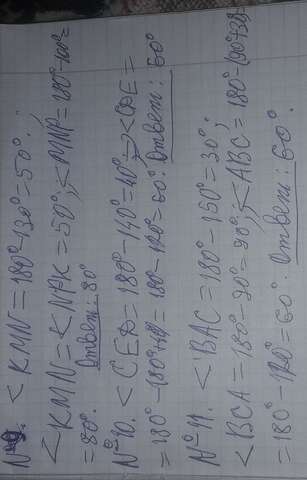 №9. < KMN = 180°-130°=50°.
< KMN = < NPK = 50°; < MNP = 180°-100°=
= 80°.
Ответ: 80°
№10. < CED = 180°-140°=40° => < CDE =
= 180°-(80°+40°)= 180°-120°= 60°. Ответ: 60°
№11. < BAC = 180°-150°=30°;
< BCA = 180°-90°= 90°; < ABC = 180°-(90°+30°)
= 180°-120°= 60°. Ответ: 60°.